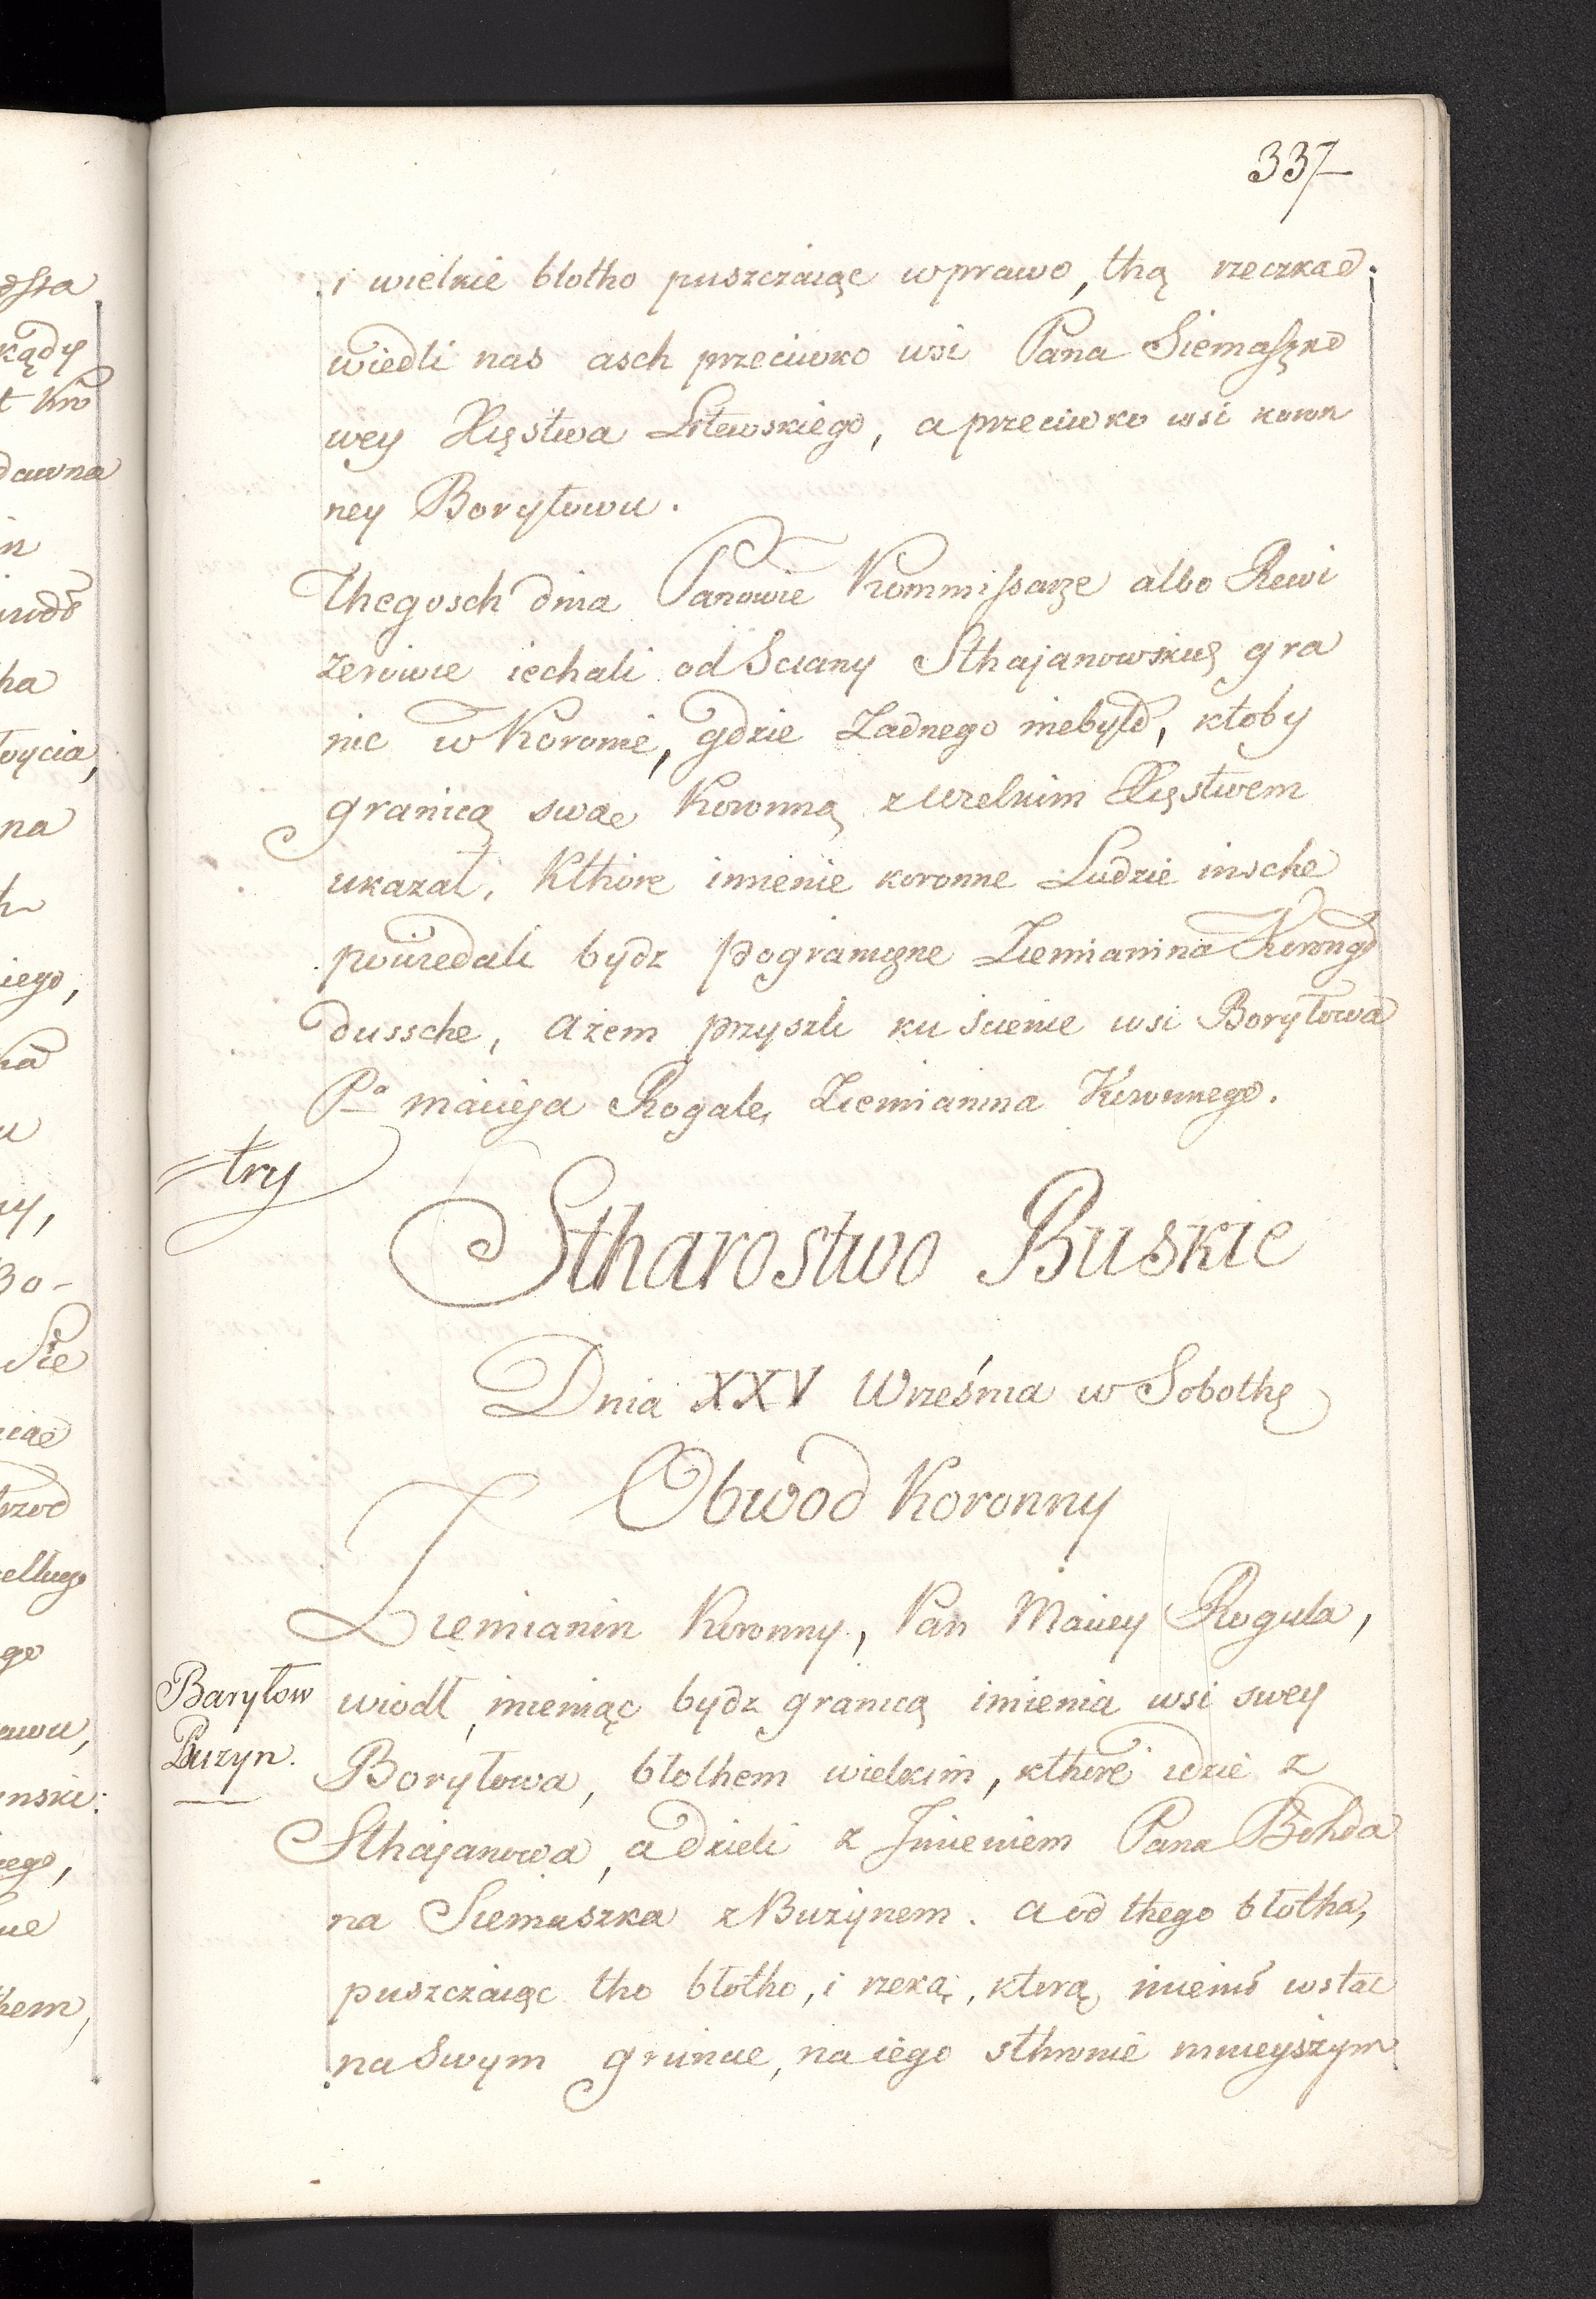 337
i wielkie błotho puszczaiąc wprawo, thą rzeczkae
wiedli nas asch przeciwko wsi Pana Siemaszko
wey Xięstwa Litewskiego, a przeciwko wsi koron
ney Boryłowu.
Thegosch dnia Panowie Kommissarze albo Rewi
zerowie iechali od Sciany Sthajanowskię gra
nic w Koronie, gdzie Zadnego niebyło, ktoby
granicą swae Koronną z Wielkim Xięstwem
ukazał. Kthore imienie koronne Ludzie insche
powiedali bydz pograniczne Ziemianina Korongo
dussche, ażem przyszli ku ścienie wsi Boryłowa
Pa macieja Rogale, Ziemianina Koronnego.
try
Stharostwo Buskie
Dnia XXV Września w Sobothę
Obwod Koronny
Ziemianin Koronny, Pan Maciey Rogala,
Baryłow
wiodł, mieniąc bydz granicą imienia wsi swey
Buzyn.
Boryłowa, błothem wielkim, kthore idzie z
Sthajanowa, a dzieli z Jmieniem Pana Bohda
na Siemaszka z Buzynem. a od thego błotha,
puszczaiąc tho błotho, i rzeką, kterą mienił wstac
na Swym gruncie, na iego sthronie mnieyszym